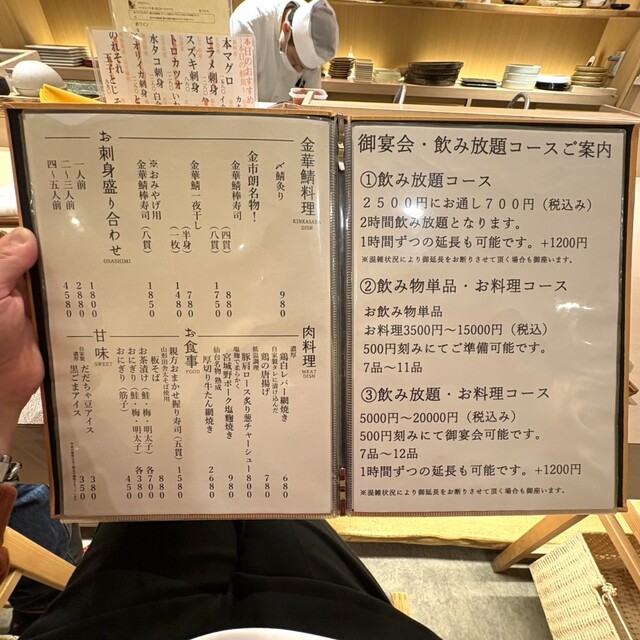 本日のおすすめ
本マグロ
ヒラメ刺身
スズキ刺身
トロカツオ
水タコ刺身
オリイカ刺身
のれそれ
金華鯖料理
KINKASABA DISH
〆鯖炙り 980
金市朗名物!
金華鯖棒寿司 (四貫) 880
(八貫) 1750
金華鯖一夜干し (半身) 780
(一枚) 1480
※おみやげ用
金華鯖棒寿司 (八貫) 1850
お刺身盛り合わせ
OSASHIMI
一人前 1880
二〜三人前 2880
四〜五人前 4580
肉料理
MEAT DISH
濃厚
鶏白レバー網焼き 680
自家製タレに漬け込んだ
鶏の唐揚げ 780
低温調理
豚肩ロース炙り葱チャーシュー 800
塩麹で柔らかく
宮城野ポーク塩麹焼き 980
仙台名物 熟成
厚切り牛たん網焼き 2680
お食事
FOOD
親方おまかせ握り寿司(五貫) 1580
山形田舎そば使用
板そば 880
お茶漬け(鮭・梅・明太子) 各700
おにぎり(鮭・梅・明太子) 各380
おにぎり(筋子) 450
甘味
SWEET
だだちゃ豆アイス 380
自家製 濃厚
黒ごまアイス 350
御宴会・飲み放題コースご案内
①飲み放題コース
2500円にお通し700円(税込み)
2時間飲み放題となります。
1時間ずつの延長も可能です。+1200円
※混雑状況により御延長をお断りさせて頂く場合も御座います。
②飲み物単品・お料理コース
お飲み物単品
お料理3500円〜15000円(税込)
500円刻みにてご準備可能です。
7品〜11品
③飲み放題・お料理コース
5000円〜20000円(税込み)
500円刻みにて御宴会可能です。
7品〜12品
1時間ずつの延長も可能です。+1200円
※混雑状況により御延長をお断りさせて頂く場合も御座います。